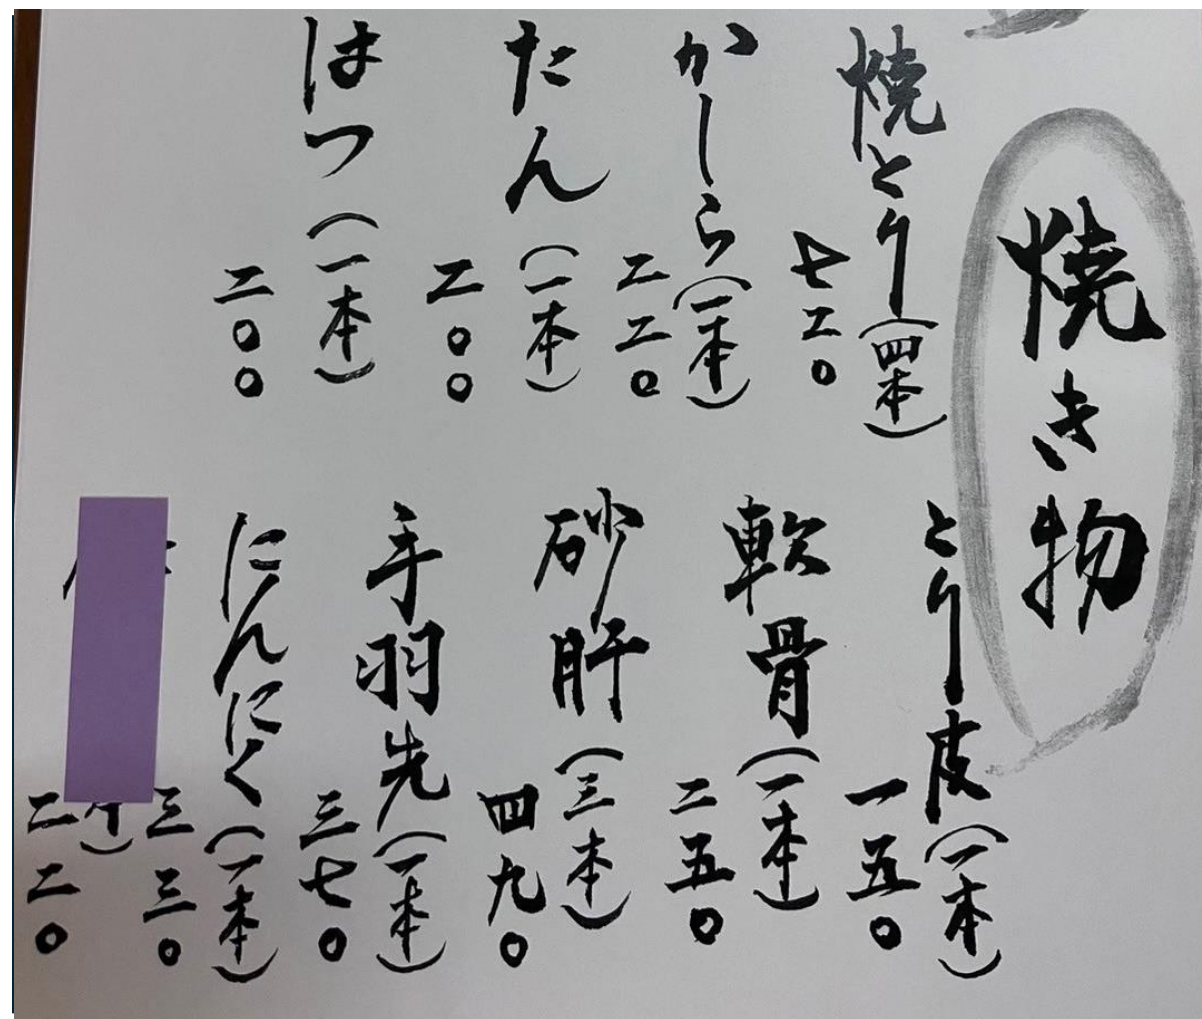 焼き物
焼とり(四本)
七二〇
かしら(一本)
二二〇
たん(一本)
二〇〇
はつ(一本)
二〇〇
とり皮(一本)
一五〇
軟骨(一本)
二五〇
砂肝(三本)
四九〇
手羽先(一本)
三七〇
にんにく(一本)
三三〇
二二〇